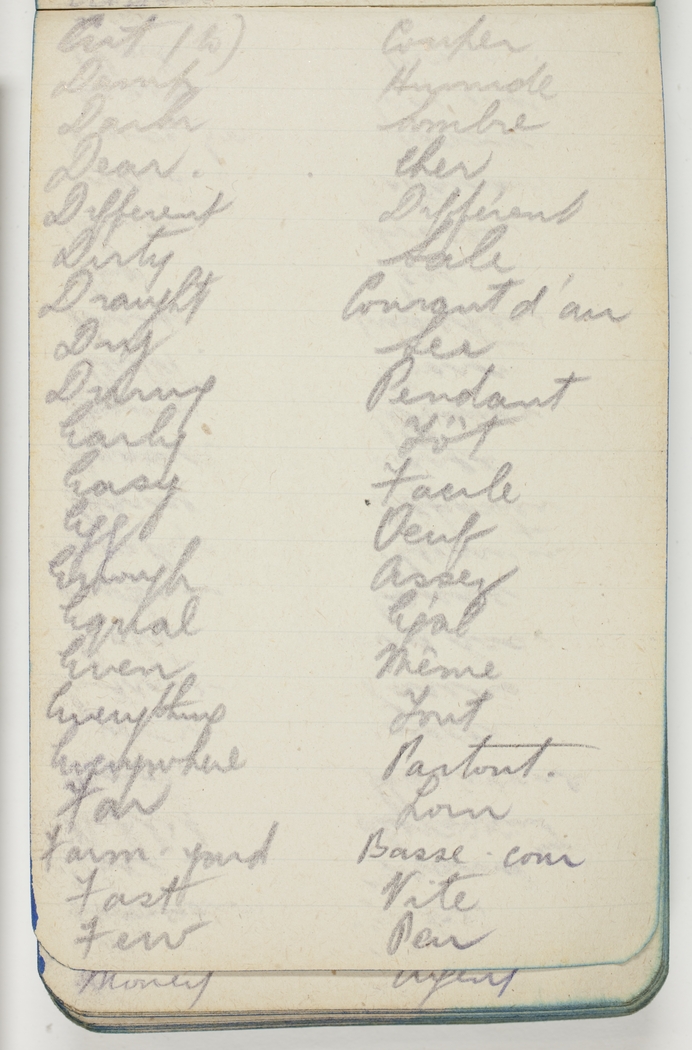 Cut (to) Couper
Damp Humide
Dark Sombre
Dear. Cher
Different Différent
Dirty Sale
Draught Courant d'air
Dry Sec
During Pendant
Early Tôt
Easy Facile
Egg Oeuf
Enough Assez
Equal Egal
Even Même
Everything Tout
Everywhere Partout.
Far Loin
Farm-yard Basse-cour
Fast Vite
Few Peu
Money Argent